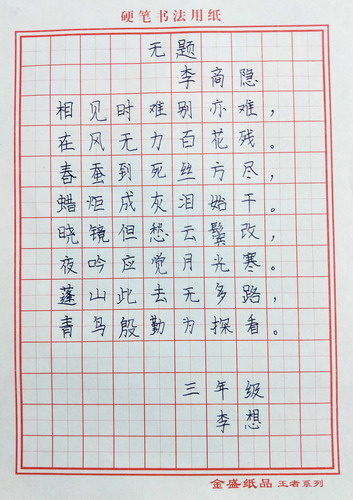 硬笔书法用纸
无题
李商隐
相见时难别亦难，
在风无力百花残。
春蚕到死丝方尽，
蜡炬成灰泪始干。
晓镜但愁云鬓改，
夜吟应觉月光寒。
蓬山此去无多路，
青鸟殷勤为探看。
三年级
李想
金盛纸品 王者系列